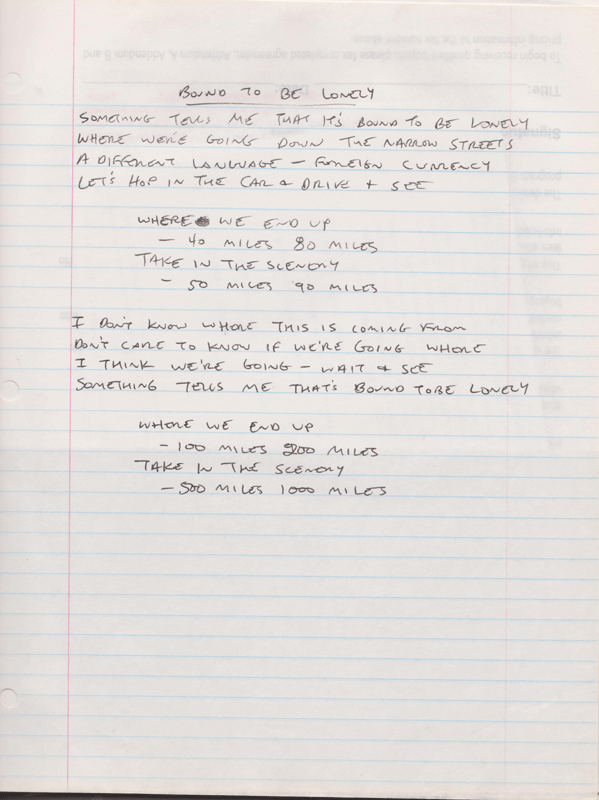 BOUND TO BE LONELY
SOMETHING TELLS ME THAT IT'S BOUND TO BE LONELY
WHERE WE'RE GOING DOWN THE NARROW STREETS
A DIFFERENT LANGUAGE - FOREIGN CURRENCY
LET'S HOP IN THE CAR & DRIVE & SEE
WHERE WE END UP
- 40 MILES 80 MILES
TAKE IN THE SCENERY
- 50 MILES 90 MILES
I DON'T KNOW WHERE THIS IS COMING FROM
DON'T CARE TO KNOW IF WE'RE GOING WHERE
I THINK WE'RE GOING - WAIT & SEE
SOMETHING TELLS ME THAT'S BOUND TO BE LONELY
WHERE WE END UP
- 100 MILES 200 MILES
TAKE IN THE SCENERY
- 500 MILES 1000 MILES